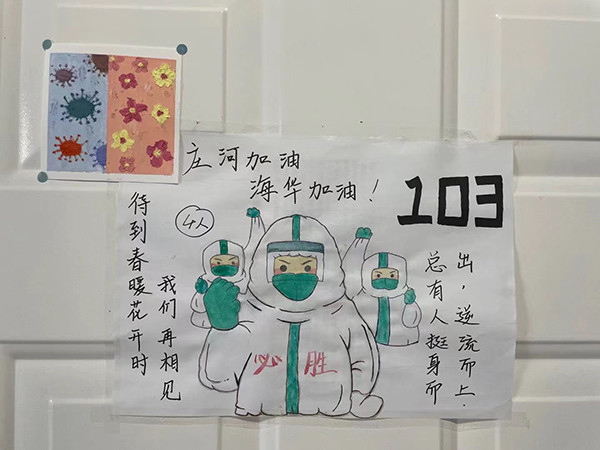 庄河加油
海华加油！
103
4人
待到春暖花开时
我们再相见
必胜
总有人挺身而
出，逆流而上.